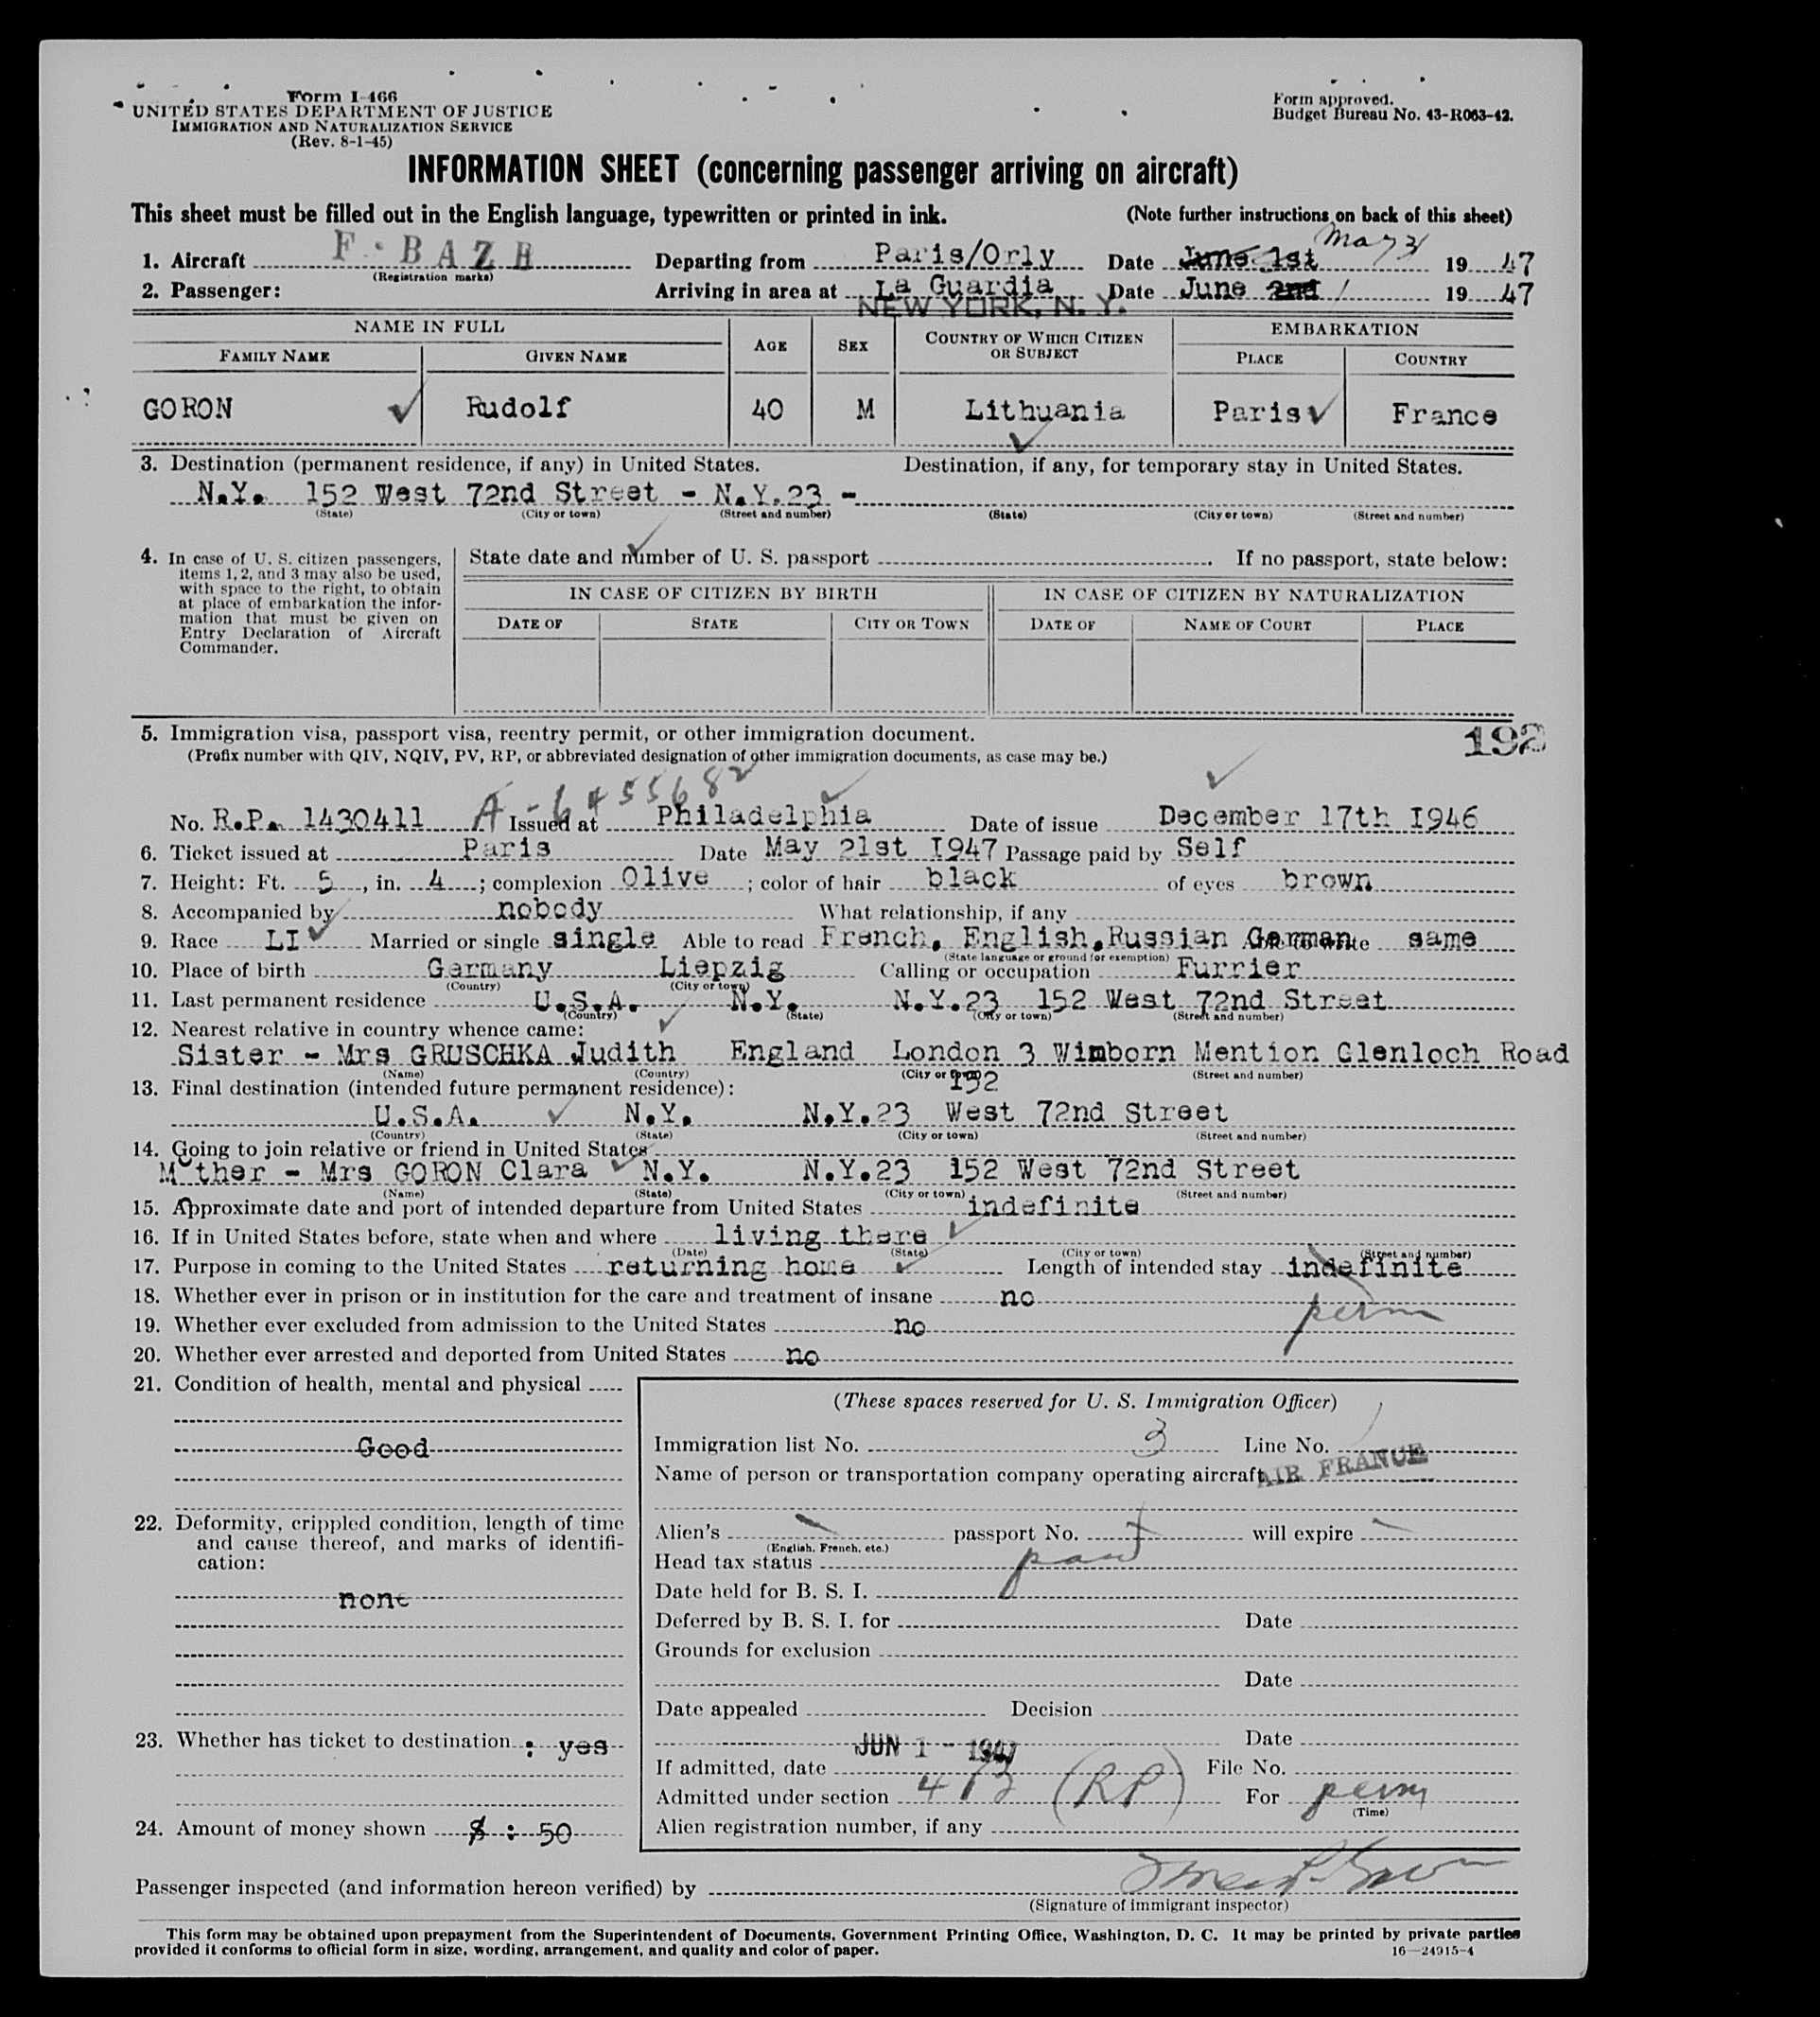 Form I-466
UNITED STATES DEPARTMENT OF JUSTICE
IMMIGRATION AND NATURALIZATION SERVICE
(Rev. 8-1-45)
Form approved.
Budget Bureau No. 43-R063-42.
INFORMATION SHEET (concerning passenger arriving on aircraft)
This sheet must be filled out in the English language, typewritten or printed in ink. (Note further instructions on back of this sheet)
1. Aircraft F-BAZB Departing from Paris/Orly Date June 1st May 31 1947
(Registration marks)
2. Passenger: Arriving in area at La Guardia Date June 2nd 1 1947
NEW YORK, N. Y.
NAME IN FULL AGE SEX COUNTRY OF WHICH CITIZEN OR SUBJECT EMBARKATION
FAMILY NAME GIVEN NAME PLACE COUNTRY
GORON Rudolf 40 M Lithuania Paris France
3. Destination (permanent residence, if any) in United States. Destination, if any, for temporary stay in United States.
N.Y. 152 West 72nd Street - N.Y.23 -
(State) (City or town) (Street and number) (State) (City or town) (Street and number)
4. In case of U. S. citizen passengers, items 1, 2, and 3 may also be used, with space to the right, to obtain at place of embarkation the information that must be given on Entry Declaration of Aircraft Commander.
State date and number of U. S. passport . If no passport, state below:
IN CASE OF CITIZEN BY BIRTH IN CASE OF CITIZEN BY NATURALIZATION
DATE OF STATE CITY OR TOWN DATE OF NAME OF COURT PLACE
5. Immigration visa, passport visa, reentry permit, or other immigration document.
192
(Prefix number with QIV, NQIV, PV, RP, or abbreviated designation of other immigration documents, as case may be.)
A-6455682
No. R.P. 1430411 Issued at Philadelphia Date of issue December 17th 1946
6. Ticket issued at Paris Date May 21st 1947 Passage paid by Self
7. Height: Ft. 5, in. 4; complexion Olive; color of hair black of eyes brown
8. Accompanied by nobody What relationship, if any
9. Race LI Married or single single Able to read French, English, Russian German Able to write same
(State language or ground for exemption)
10. Place of birth Germany Liepzig Calling or occupation Furrier
(Country) (City or town)
11. Last permanent residence U.S.A. N.Y. N.Y.23 152 West 72nd Street
(Country) (State) (City or town) (Street and number)
12. Nearest relative in country whence came:
Sister - Mrs GRUSCHKA Judith England London 3 Wimborn Mention Glenloch Road
(Name) (Country) (City or town) (Street and number)
13. Final destination (intended future permanent residence): 152
U.S.A. N.Y. N.Y.23 West 72nd Street
(Country) (State) (City or town) (Street and number)
14. Going to join relative or friend in United States
Mother - Mrs GORON Clara N.Y. N.Y.23 152 West 72nd Street
(Name) (State) (City or town) (Street and number)
15. Approximate date and port of intended departure from United States indefinite
16. If in United States before, state when and where living there
(Date) (State) (City or town) (Street and number)
17. Purpose in coming to the United States returning home Length of intended stay indefinite
perm
18. Whether ever in prison or in institution for the care and treatment of insane no
19. Whether ever excluded from admission to the United States no
20. Whether ever arrested and deported from United States no
21. Condition of health, mental and physical
Good
22. Deformity, crippled condition, length of time and cause thereof, and marks of identification:
none
23. Whether has ticket to destination : yes
24. Amount of money shown $ : 50
(These spaces reserved for U. S. Immigration Officer)
Immigration list No. 3 Line No. 1
Name of person or transportation company operating aircraft AIR FRANCE
Alien's passport No. will expire
(English, French, etc.)
Head tax status paid
Date held for B. S. I.
Deferred by B. S. I. for Date
Grounds for exclusion
Date
Date appealed Decision
Date
If admitted, date JUN 1 - 1947 File No.
Admitted under section 4 (RP) For perm
(Time)
Alien registration number, if any
Passenger inspected (and information hereon verified) by
(Signature of immigrant inspector)
This form may be obtained upon prepayment from the Superintendent of Documents, Government Printing Office, Washington, D. C. It may be printed by private parties
provided it conforms to official form in size, wording, arrangement, and quality and color of paper. 16—24915-4